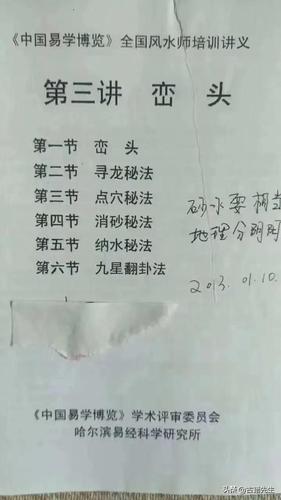 《中国易学博览》全国风水师培训讲义
第三讲 峦 头
第一节 峦头
第二节 寻龙秘法
第三节 点穴秘法
第四节 消砂秘法
第五节 纳水秘法
第六节 九星翻卦法
砂水要相
地理分明
2013.01.10.
《中国易学博览》学术评审委员会
哈尔滨易经科学研究所
头条@古语先生